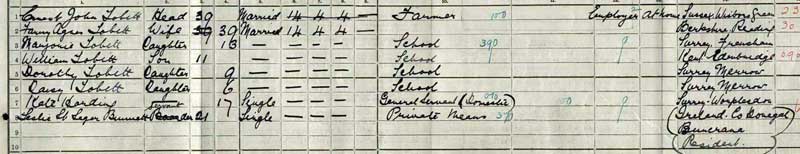 1 Ernest John Tobett Head 39 Married 14 4 4 — Farmer 100 Employer At home Sussex
2 Fanny Agnes Tobett Wife 39 Married 14 4 4 — Berkshire Reading
3 Marjorie Tobett Daughter 13 — — — — — School 390 Surrey Frensham
4 William Tobett Son 11 — — — — — School Kent Edenbridge
5 Dorothy Tobett Daughter 9 — — — — — School Surrey Merrow
6 Daisy Tobett Daughter 6 — — — — — School Surrey Merrow
7 Kate Harding Servant 17 Single — — — — General Servant (Domestic) Surrey Worplesdon
8 Leslie St Leger Boarder 21 Single — — — — Private Means (Ireland Co Donegal
9 Buncrana
10 Resident)